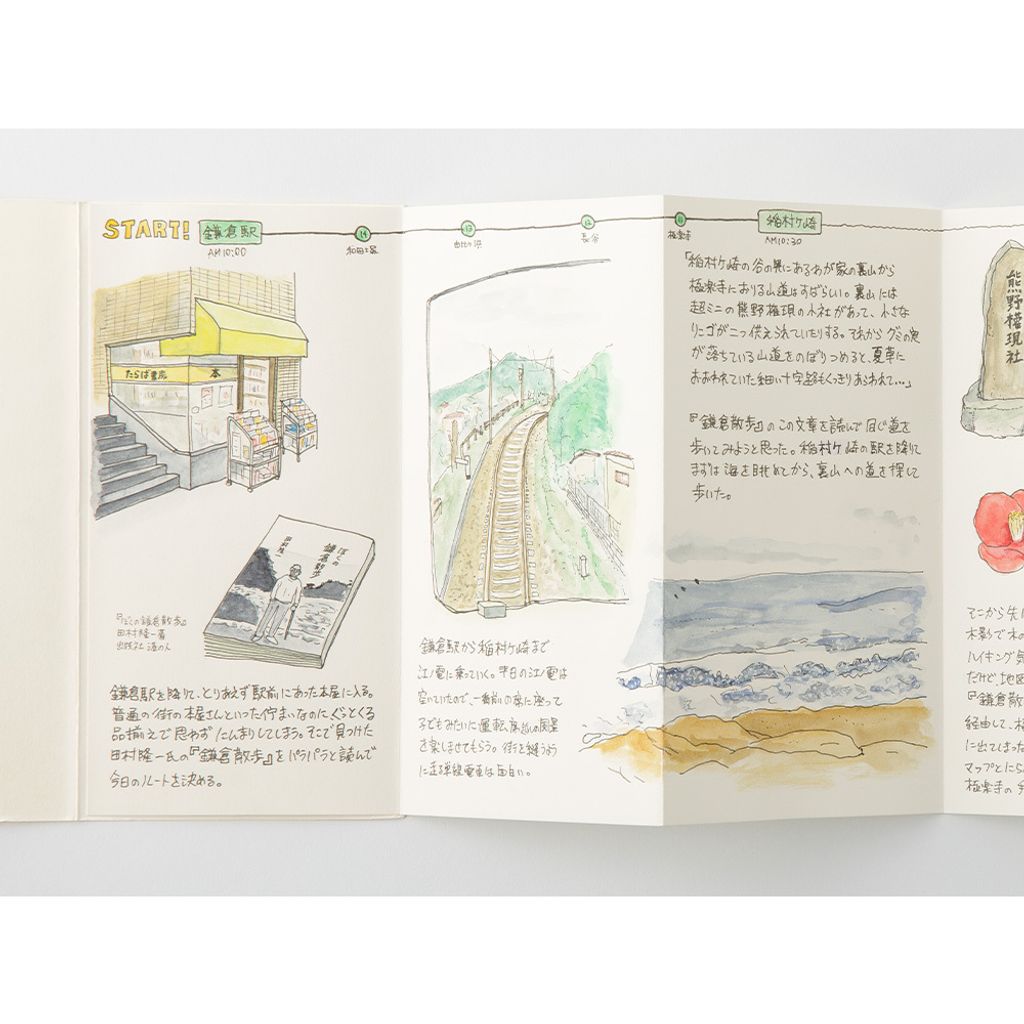 START!
鎌倉駅
AM10:00
14
和田塚
13
由比ヶ浜
12
長谷
11
極楽寺
稲村ケ崎
AM10:30
たらば書房
本
ぼくの
鎌倉散歩
田村隆一
『ぼくの鎌倉散歩』
田村隆一著
出版社 港の人
鎌倉駅を降りて、とりあえず駅前にあった本屋に入る。
普通の街の本屋さんといった佇まいなのにぐっとくる
品揃えで思わずたんまりしてしまう。そこで見つけた
田村隆一氏の『鎌倉散歩』をパラパラと読んで
今日のルートを決める。
鎌倉駅から稲村ケ崎まで
江ノ電に乗っていく。平日の江ノ電は
空いていたので、一番前の席に座って
子どもみたいに運転席越しの風景
を楽しませてもらう。街を縫うよう
に走る単線電車は面白い。
「稲村ケ崎の谷の奥にあるわが家の裏山から
極楽寺におりる山道はすばらしい。裏山には
超ミニの熊野権現の小社があって、小さな
リンゴが二つ供えられていたりする。それからグミの実
が落ちている山道をのぼりつめると、夏草に
おおわれていた細い十字路もくっきりあらわれて…」
『鎌倉散歩』のこの文章を読んで同じ道を
歩いてみようと思った。稲村ケ崎の駅を降りて
まずは海を眺めてから、裏山への道を探して
歩いた。
熊野権現社
そこから先
木影で木の
ハイキング気
だけど、地図
『鎌倉散
経由して、極
に出てしまった
マップとにら
極楽寺の